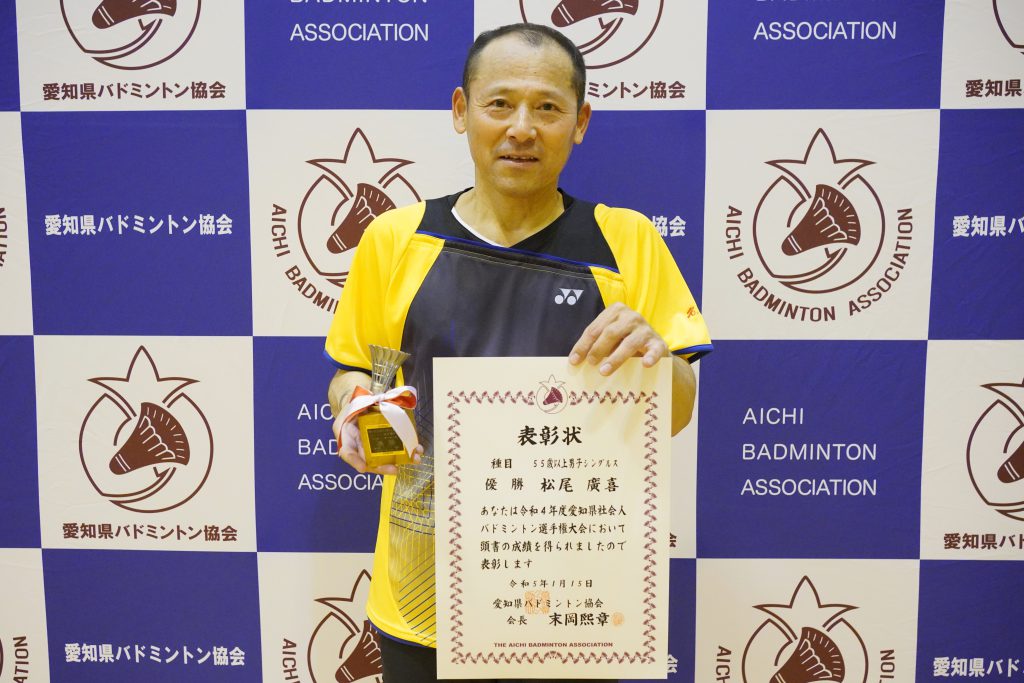 BADMINTON
ASSOCIATION
ASSOCIATION
愛知県バドミントン協会
愛知県バドミントン協会
愛知県バドミントン協会
AICHI BADMINTON ASSOCIATION
AICHI BADMINTON ASSOCIATION
愛知県バドミントン協会
AICHI
BADMINTON
ASSOCIATION
愛知県バドミントン協会
愛知県バドミントン協会
表彰状
種目 55歳以上男子シングルス
優勝 松尾 廣喜
あなたは令和4年度愛知県社会人
バドミントン選手権大会において
頭書の成績を得られましたので
表彰します
令和5年1月15日
愛知県バドミントン協会
会長 末岡熙章
THE AICHI BADMINTON ASSOCIATION